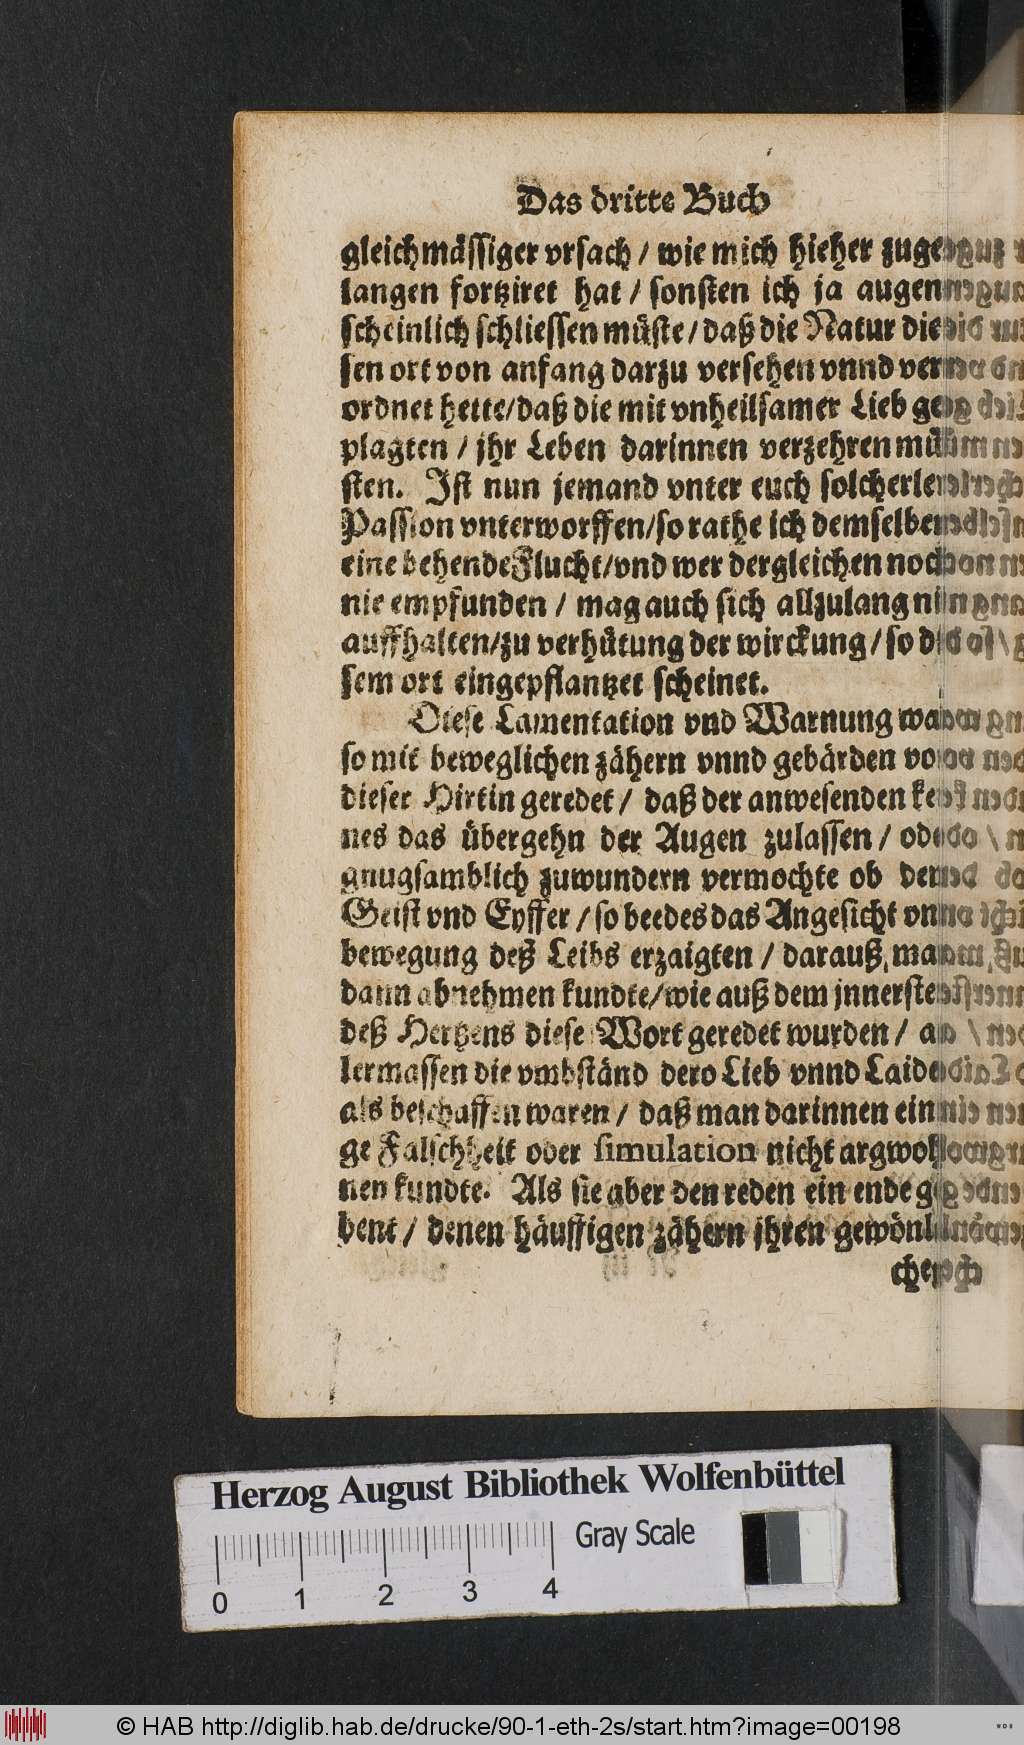 Das dritte Buch
gleichmässiger vrsach / wie mich hieher zuge⸗
langen fortziret hat / sonsten ich ja augen⸗
scheinlich schliessen müste / daß die Natur die⸗
sen ort von anfang darzu versehen vnnd ver⸗
ordnet hette / daß die mit vnheilsamer Lieb ge⸗
plagten / jhr Leben darinnen verzehren mü⸗
sten. Ist nun jemand vnter euch solcherley
Passion vnterworffen / so rathe ich demselben
eine behende Flucht / vnd wer dergleichen noch
nie empfunden / mag auch sich allzulang nit
auffhalten / zu verhütung der wirckung / so di⸗
sem ort eingepflantzet scheinet.
Diese Lamentation vnd Warnung war
so mit beweglichen zähern vnnd gebärden von
dieser Hirtin geredet / daß der anwesenden kei⸗
nes das übergehn der Augen zulassen / oder
gnugsamblich zuwundern vermochte ob dem
Geist vnd Eyffer / so beedes das Angesicht vnd
bewegung deß Leibs erzaigten / darauß, man
dann abnehmen kundte / wie auß dem jnnersten
deß Hertzens diese Wort geredet wurden / al⸗
lermassen die vmbständ dero Lieb vnnd Laids
als beschaffen waren / daß man darinnen eini⸗
ge Falschheit oder simulation nicht argwoh⸗
nen kundte. Als sie aber den reden ein ende ge⸗
bent / denen häuffigen zähern jhren gewönl⸗
chen
Herzog August Bibliothek Wolfenbüttel
Gray Scale
0 1 2 3 4
© HAB http://diglib.hab.de/drucke/90-1-eth-2s/start.htm?image=00198